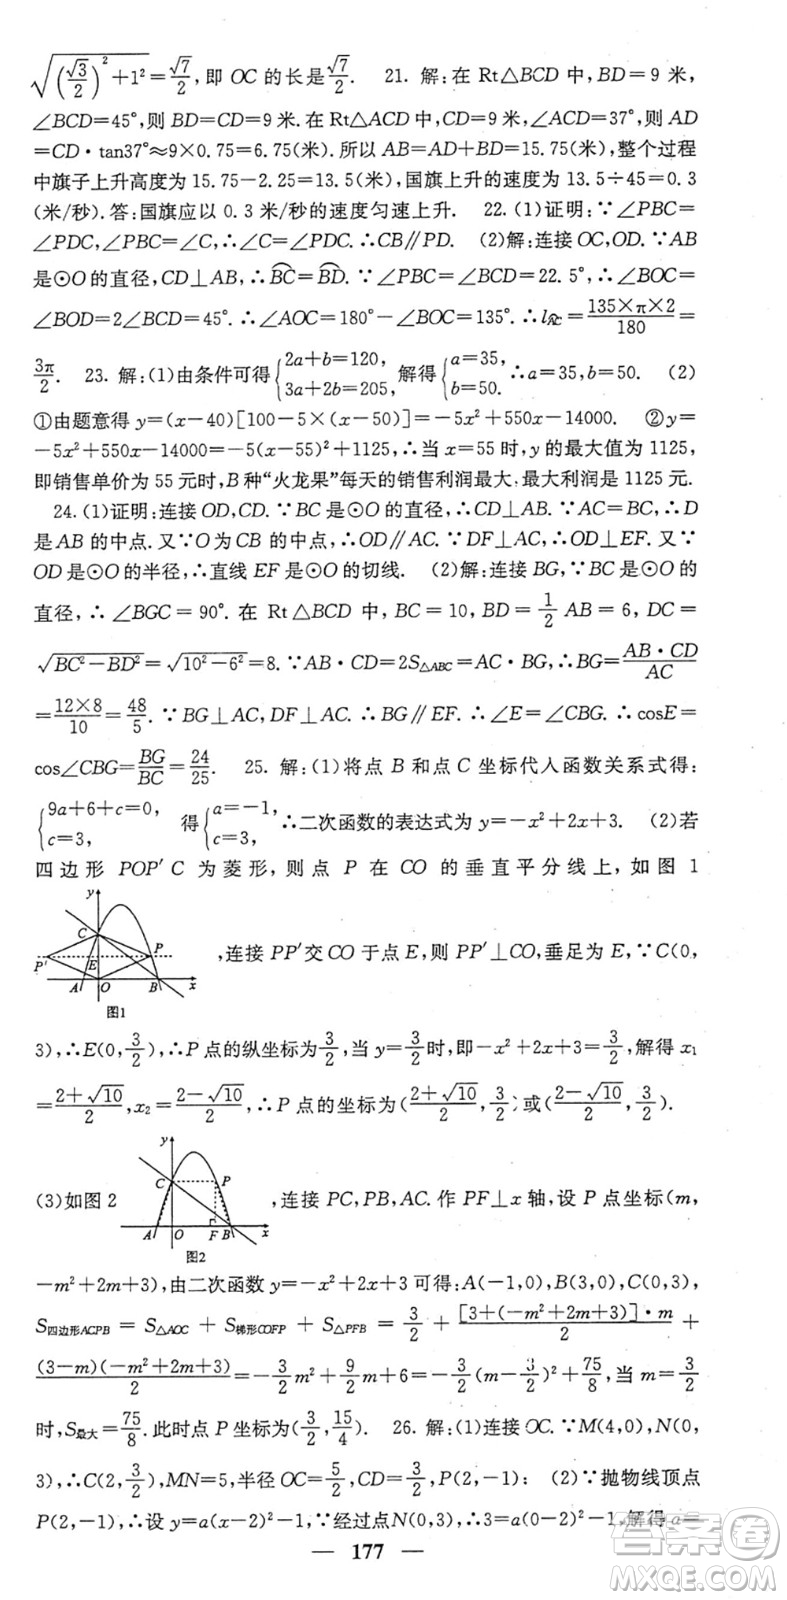 √((√3/2)²+1²)=√7/2,即 OC 的长是√7/2. 21. 解:在 Rt△BCD 中,BD=9 米,
∠BCD=45°,则 BD=CD=9 米.在 Rt△ACD 中,CD=9 米,∠ACD=37°,则 AD
=CD·tan37°≈9×0.75=6.75(米).所以 AB=AD+BD=15.75(米),整个过程
中旗子上升高度为 15.75-2.25=13.5(米),国旗上升的速度为 13.5÷45=0.3
(米/秒).答:国旗应以 0.3 米/秒的速度匀速上升. 22. (1)证明:∵∠PBC=
∠PDC,∠PBC=∠C,∴∠C=∠PDC.∴CB∥PD. (2)解:连接 OC,OD.∵AB
是⊙O 的直径,CD⊥AB,∴⌒BC=⌒BD.∵∠PBC=∠BCD=22.5°,∴∠BOC=
∠BOD=2∠BCD=45°.∴∠AOC=180°-∠BOC=135°.∴l⌒AC=135×π×2/180=
3π/2. 23. 解:(1)由条件可得{2a+b=120, 3a+2b=205, 解得{a=35, b=50. ∴a=35,b=50. (2)
①由题意得 y=(x-40)[100-5×(x-50)]=-5x²+550x-14000. ②y=
-5x²+550x-14000=-5(x-55)²+1125,∴当 x=55 时,y 的最大值为 1125,
即销售单价为 55 元时,B 种“火龙果”每天的销售利润最大,最大利润是 1125 元.
24.(1)证明:连接 OD,CD.∵BC 是⊙O 的直径,∴CD⊥AB.∵AC=BC,∴D
是 AB 的中点.又∵O 为 CB 的中点,∴OD∥AC.∵DF⊥AC,∴OD⊥EF.又∵
OD 是⊙O 的半径,∴直线 EF 是⊙O 的切线. (2)解:连接 BG,∵BC 是⊙O 的
直径,∴∠BGC=90°.在 Rt△BCD 中,BC=10,BD=1/2 AB=6,DC=
√(BC²-BD²)=√(10²-6²)=8.∵AB·CD=2S△ABC=AC·BG,∴BG=AB·CD/AC
=12×8/10=48/5.∵BG⊥AC,DF⊥AC.∴BG∥EF.∴∠E=∠CBG.∴cosE=
cos∠CBG=BG/BC=24/25. 25. 解:(1)将点 B 和点 C 坐标代入函数关系式得:
{9a+6+c=0, c=3, 得{a=-1, c=3, ∴二次函数的表达式为 y=-x²+2x+3. (2)若
四边形 POP′C 为菱形,则点 P 在 CO 的垂直平分线上,如图 1
y C P′ E P A O B x
图1
,连接 PP′交 CO 于点 E,则 PP′⊥CO,垂足为 E,∵C(0,
3),∴E(0,3/2),∴P 点的纵坐标为3/2,当 y=3/2时,即-x²+2x+3=3/2,解得 x₁
=(2+√10)/2,x₂=(2-√10)/2,∴P 点的坐标为((2+√10)/2,3/2)或((2-√10)/2,3/2).
(3)如图 2
y C P A O F B x
图2
,连接 PC,PB,AC.作 PF⊥x 轴,设 P 点坐标(m,
-m²+2m+3),由二次函数 y=-x²+2x+3 可得:A(-1,0),B(3,0),C(0,3),
S四边形ACPB=S△AOC+S梯形COFP+S△PFB=3/2+[3+(-m²+2m+3)]·m/2+
(3-m)(-m²+2m+3)/2=-3/2m²+9/2m+6=-3/2(m-3/2)²+75/8,当 m=3/2
时,S最大=75/8.此时点 P 坐标为(3/2,15/4). 26. 解:(1)连接 OC.∵M(4,0),N(0,
3),∴C(2,3/2),MN=5,半径 OC=5/2,CD=3/2,P(2,-1); (2)∵抛物线顶点
P(2,-1),∴设 y=a(x-2)²-1,∵经过点 N(0,3),∴3=a(0-2)²-1,解得 a=
— 177 —
答案圈
MXQE.COM